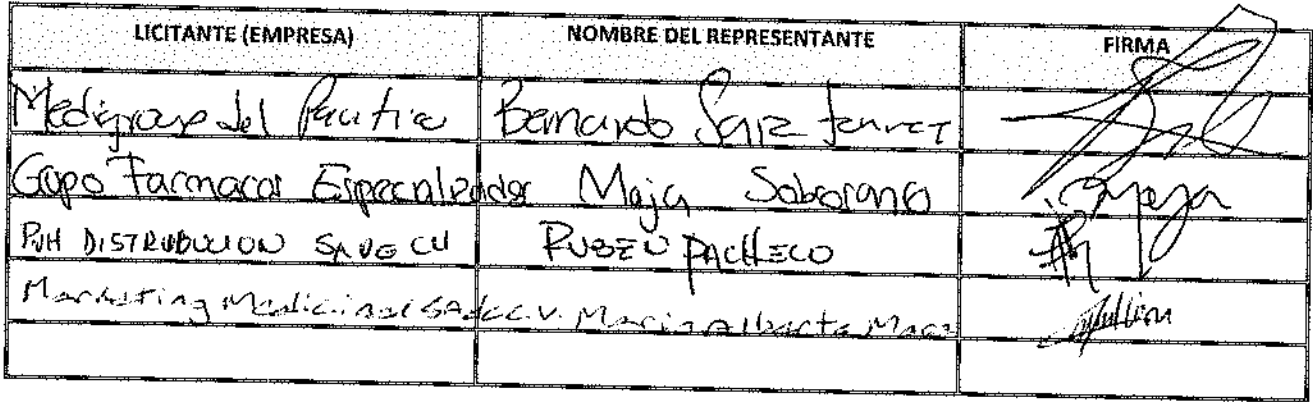 LICITANTE (EMPRESA) NOMBRE DEL REPRESENTANTE FIRMA
Medigroup del Pacifico Bernardo Saiz
Grupo Farmacos Especializados Maja Soborano
PJH DISTRIBUCION SA DE CV RUBEN PACHECO
Marketing Medicinal SA de C.V. Maria Alberta